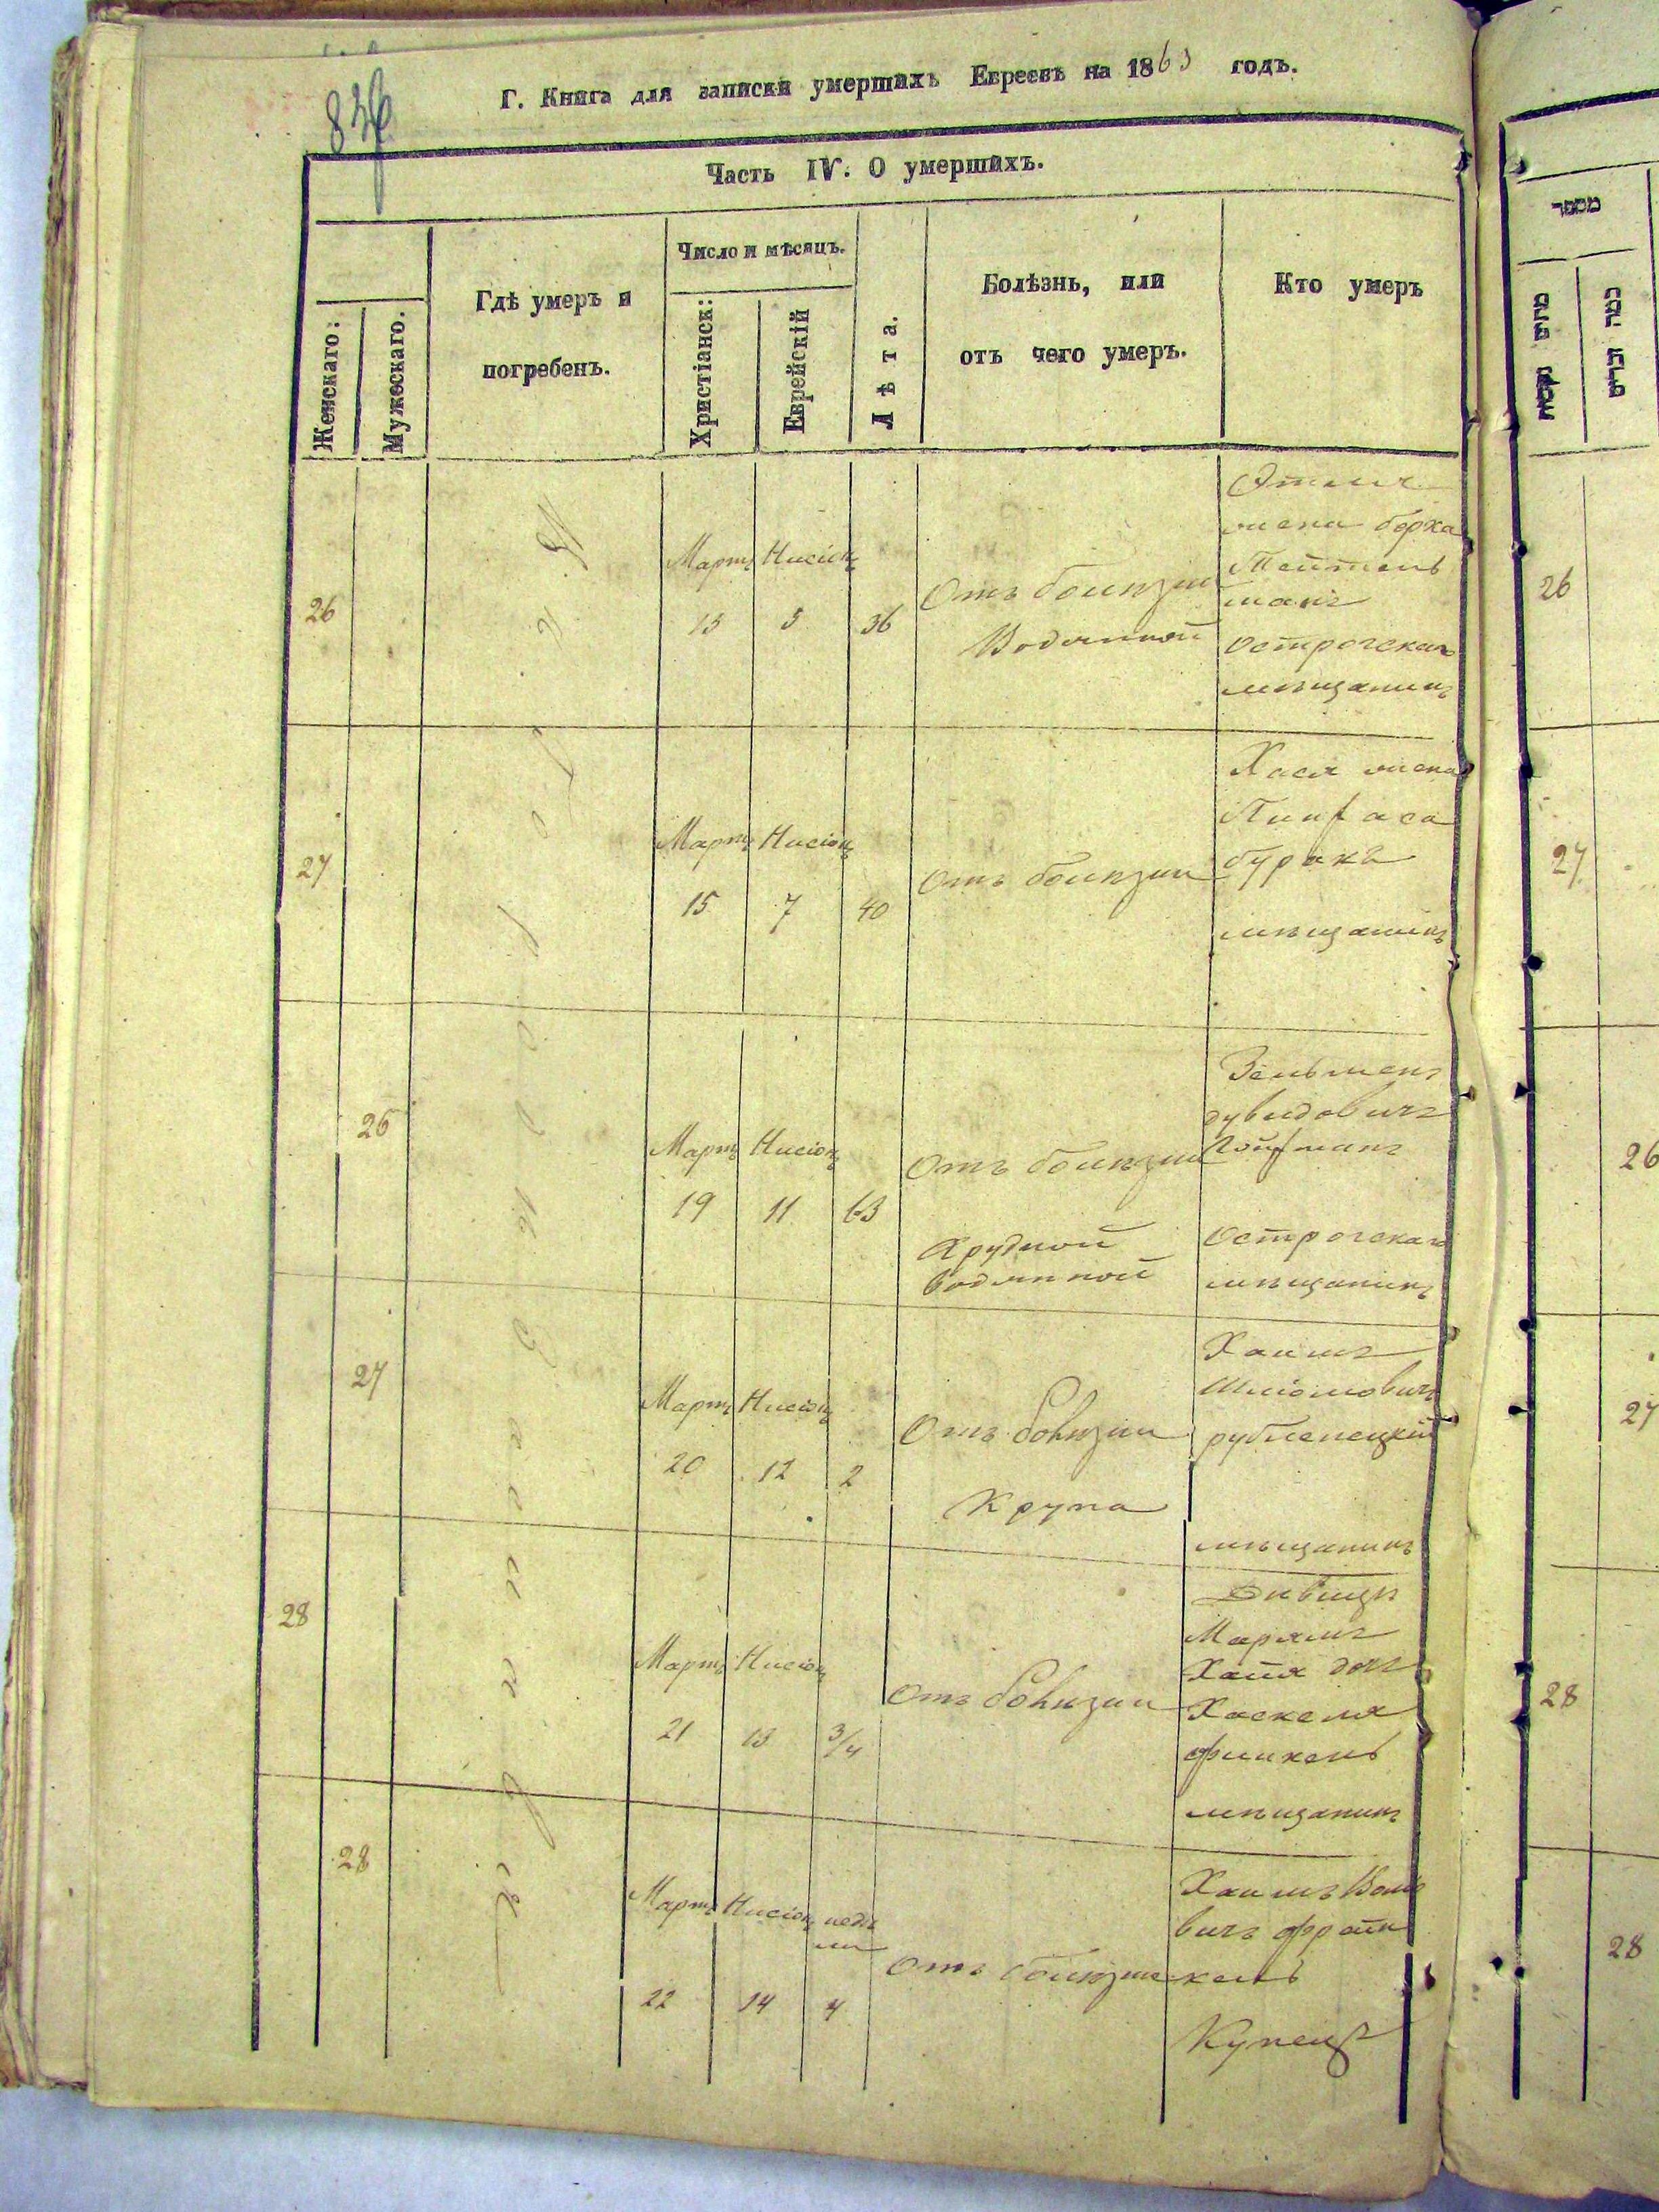 Г. Книга для записки умершихъ Евреевъ на 1863 годъ.
Часть IV. О умершихъ.
Женскаго:
Мужескаго.
Гдѣ умеръ и
погребенъ.
Число и мѣсяцъ.
Христіанск:
Еврейскій
Лѣта.
Болѣзнь, или
отъ чего умеръ.
Кто умеръ
26
Мартъ Нисіонъ
13 5 36
Отъ болѣзни
Водяной
жена борка
Острогскаго
мѣщанинъ
27
Мартъ Нисіонъ
15 7 40
Отъ болѣзни
Хася жена
Пинfаса
буракъ
мѣщанинъ
26
Мартъ Нисіонъ
19 11 63
Отъ болѣзни
Грудной
водяной
Зельменъ
дувидовичъ
Гойfманъ
Острогскаго
мѣщанинъ
27
Мартъ Нисіонъ
20 12 2
Отъ болѣзни
Крупа
Хаимъ
Шліомовичъ
мѣщанинъ
28
Мартъ Нисіонъ
21 13 3/4
Отъ болѣзни
Дѣвица
Марямъ
Хаия доч
Хаскеля
финкель
мѣщанинъ
28
Мартъ Нисіонъ недѣ
ли
22 14 4
Отъ болѣзни
Хаимъ Воль
вичъ фран
кель
Купецъ
מספר
26
27
26
27
28
28